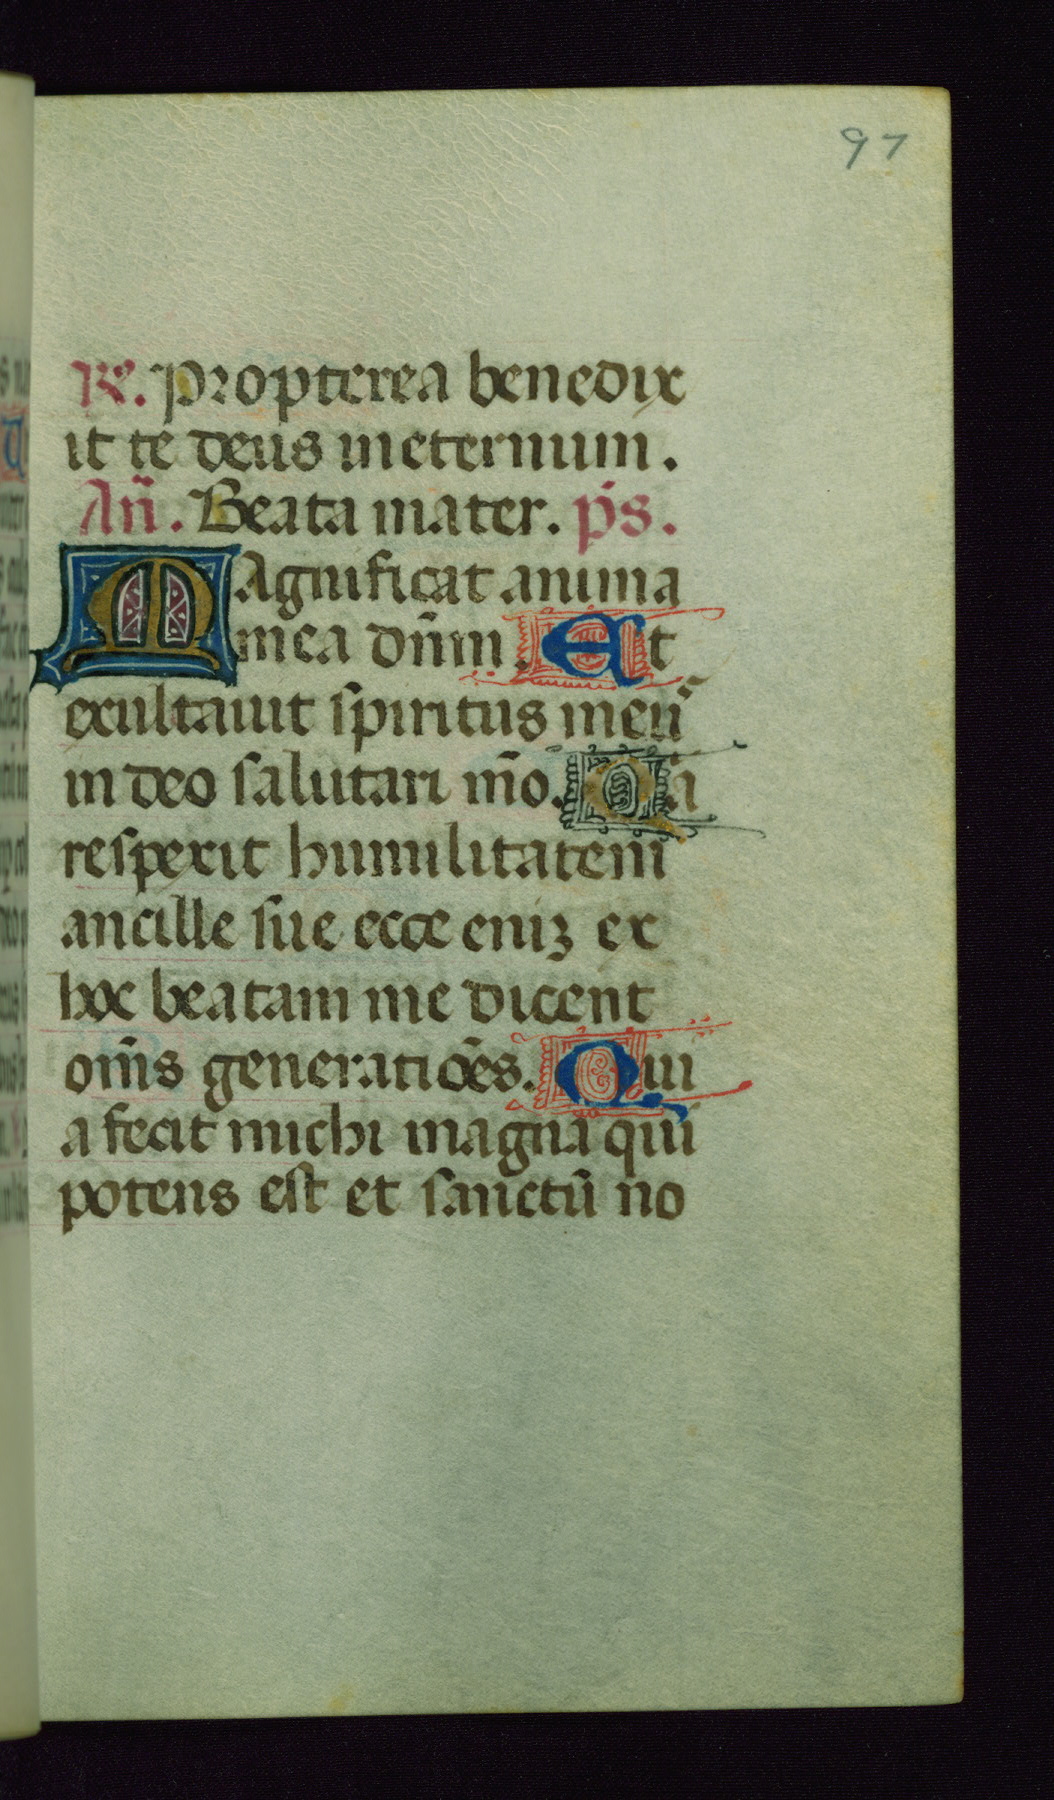 97
R̃. Propterea benedix
it te deus in eternum.
Añ. Beata mater. p̃s.
Magnificat anima
mea dñm. Et
exultauit spiritus meus
in deo salutari m̃o. Q̃a
respexit humilitatem
ancille sue ecce eniꝫ ex
hoc beatam me dicent
om̃s generatiões. Qui
a fecit michi magna qui
potens est et sanctũ no